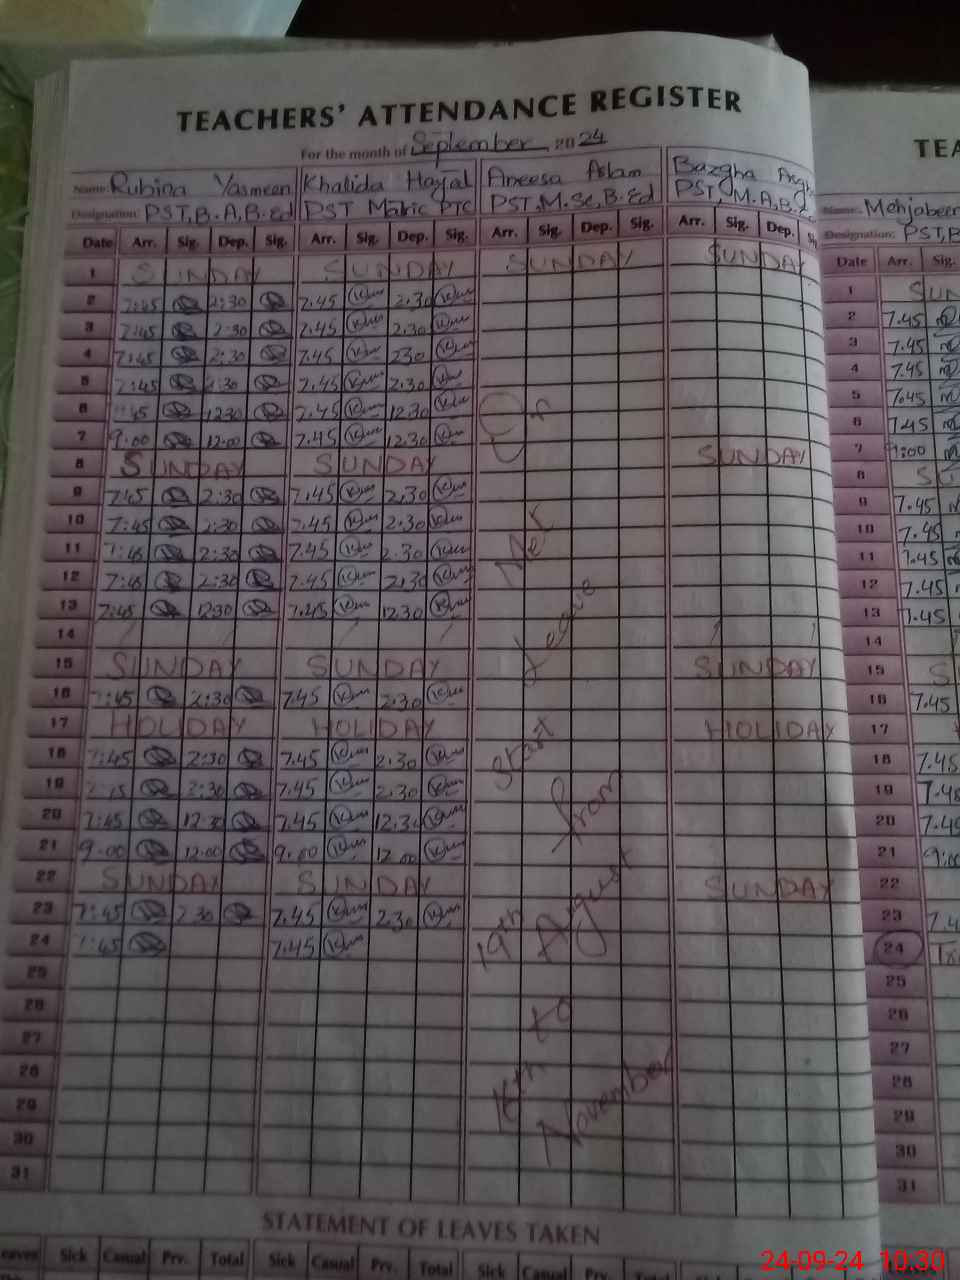 TEACHERS' ATTENDANCE REGISTER
For the month of September 2024
Name: Rubina Yasmeen Khalida Aneesa Aslam Bazgha
Designation: PST, B.A, B.Ed PST Matric PTC PST, M.Sc, B.Ed PST, M.A, B.
Date Arr. Sig. Dep. Sig. Arr. Sig. Dep. Sig. Arr. Sig. Dep. Sig. Arr. Sig. Dep.
1 SUNDAY SUNDAY SUNDAY SUNDAY
2 7:45 2:30 7.45 2.30
3 7:45 2:30 7.45 2.30
4 7:45 2:30 7.45 230
5 7:45 2:30 7.45 2.30
6 :45 1230 7.45 12.30
7 9:00 12:00 7.45 12.30
8 SUNDAY SUNDAY SUNDAY
9 7:45 2:30 7.45 2.30
10 7:45 2:30 7.45 2.30
11 7:45 2:30 7.45 2.30
12 7:45 2:30 7.45 2.30
13 7:45 1230 7.45 12.30
14
15 SUNDAY SUNDAY SUNDAY
16 7:45 2:30 7.45 2.30
17 HOLIDAY HOLIDAY HOLIDAY
18 7:45 2:30 7.45 2.30
19 2:30 7.45 2.30
20 7:45 12:30 7.45 12.30
21 9:00 12:00 9.00 12.00
22 SUNDAY SUNDAY SUNDAY
23 7:45 2:30 7.45 2.30
24 7:45 7.45
25
26
27
28
29
30
31
On
Leave
Start
from
19th August
to
16th November
STATEMENT OF LEAVES TAKEN
eaves Sick Casual Prv. Total Sick Casual Prv. Total Sick Casual Prv. Total
TEA
Name: Mehjabeen
Designation: PST, B
Date Arr. Sig.
1 SUN
2 7.45
3 7.45
4 7.45
5 7.45
6 7.45
7 9:00
8 S
9 7.45
10 7.45
11 7.45
12 7.45
13 7.45
14
15 S
16 7.45
17
18 7.45
19 7.4
20 7.4
21 9:00
22
23 7.4
24
25
26
27
28
29
30
31
24-09-24 10:30